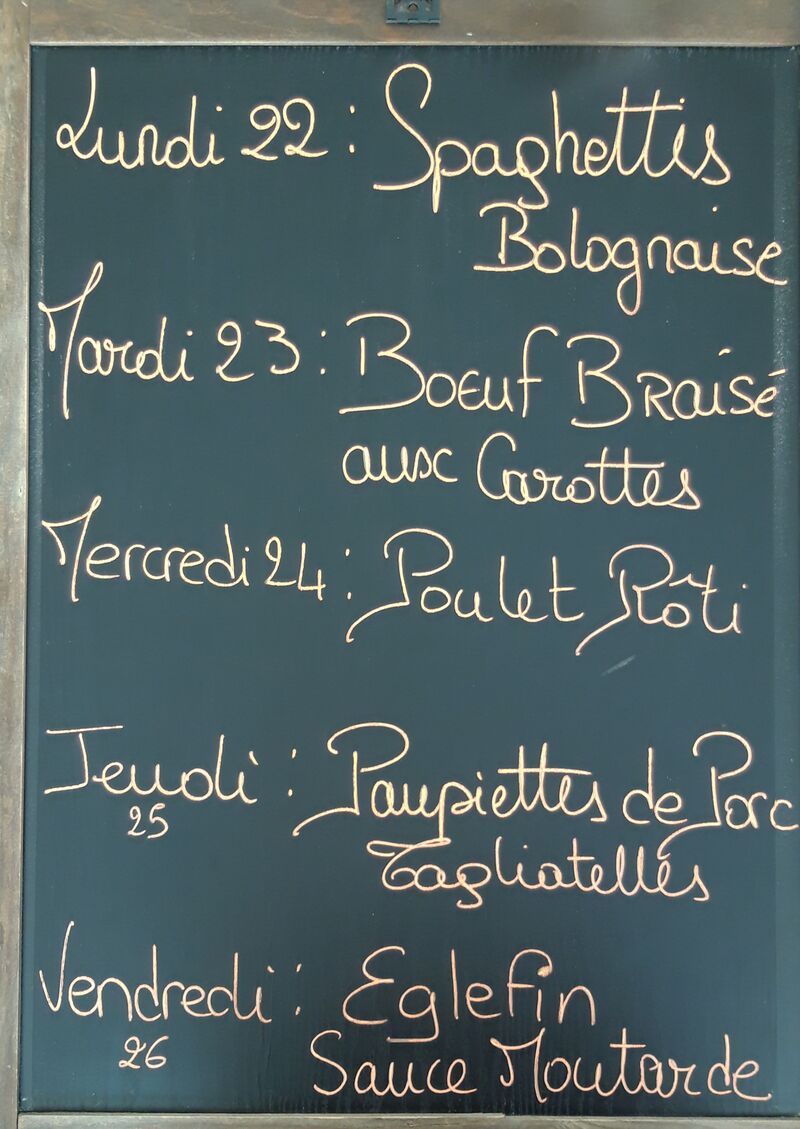 Lundi 22 : Spaghettis
Bolognaise
Mardi 23 : Boeuf Braisé
aux Carottes
Mercredi 24 : Poulet Rôti
Jeudi : Paupiettes de Porc
25
Tagliatelles
Vendredi : Eglefin
26
Sauce Moutarde